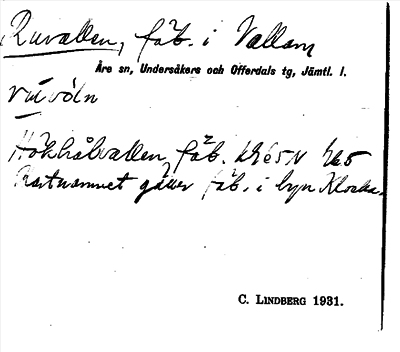 Ruvallen, fäb. i Vallam
Åre sn, Undersåkers och Offerdals tg, Jämtl. l.
Hökhålvallen, fäb.
Kartnamnet gäller fäb. i byn Klocka.
C. LINDBERG 1931.